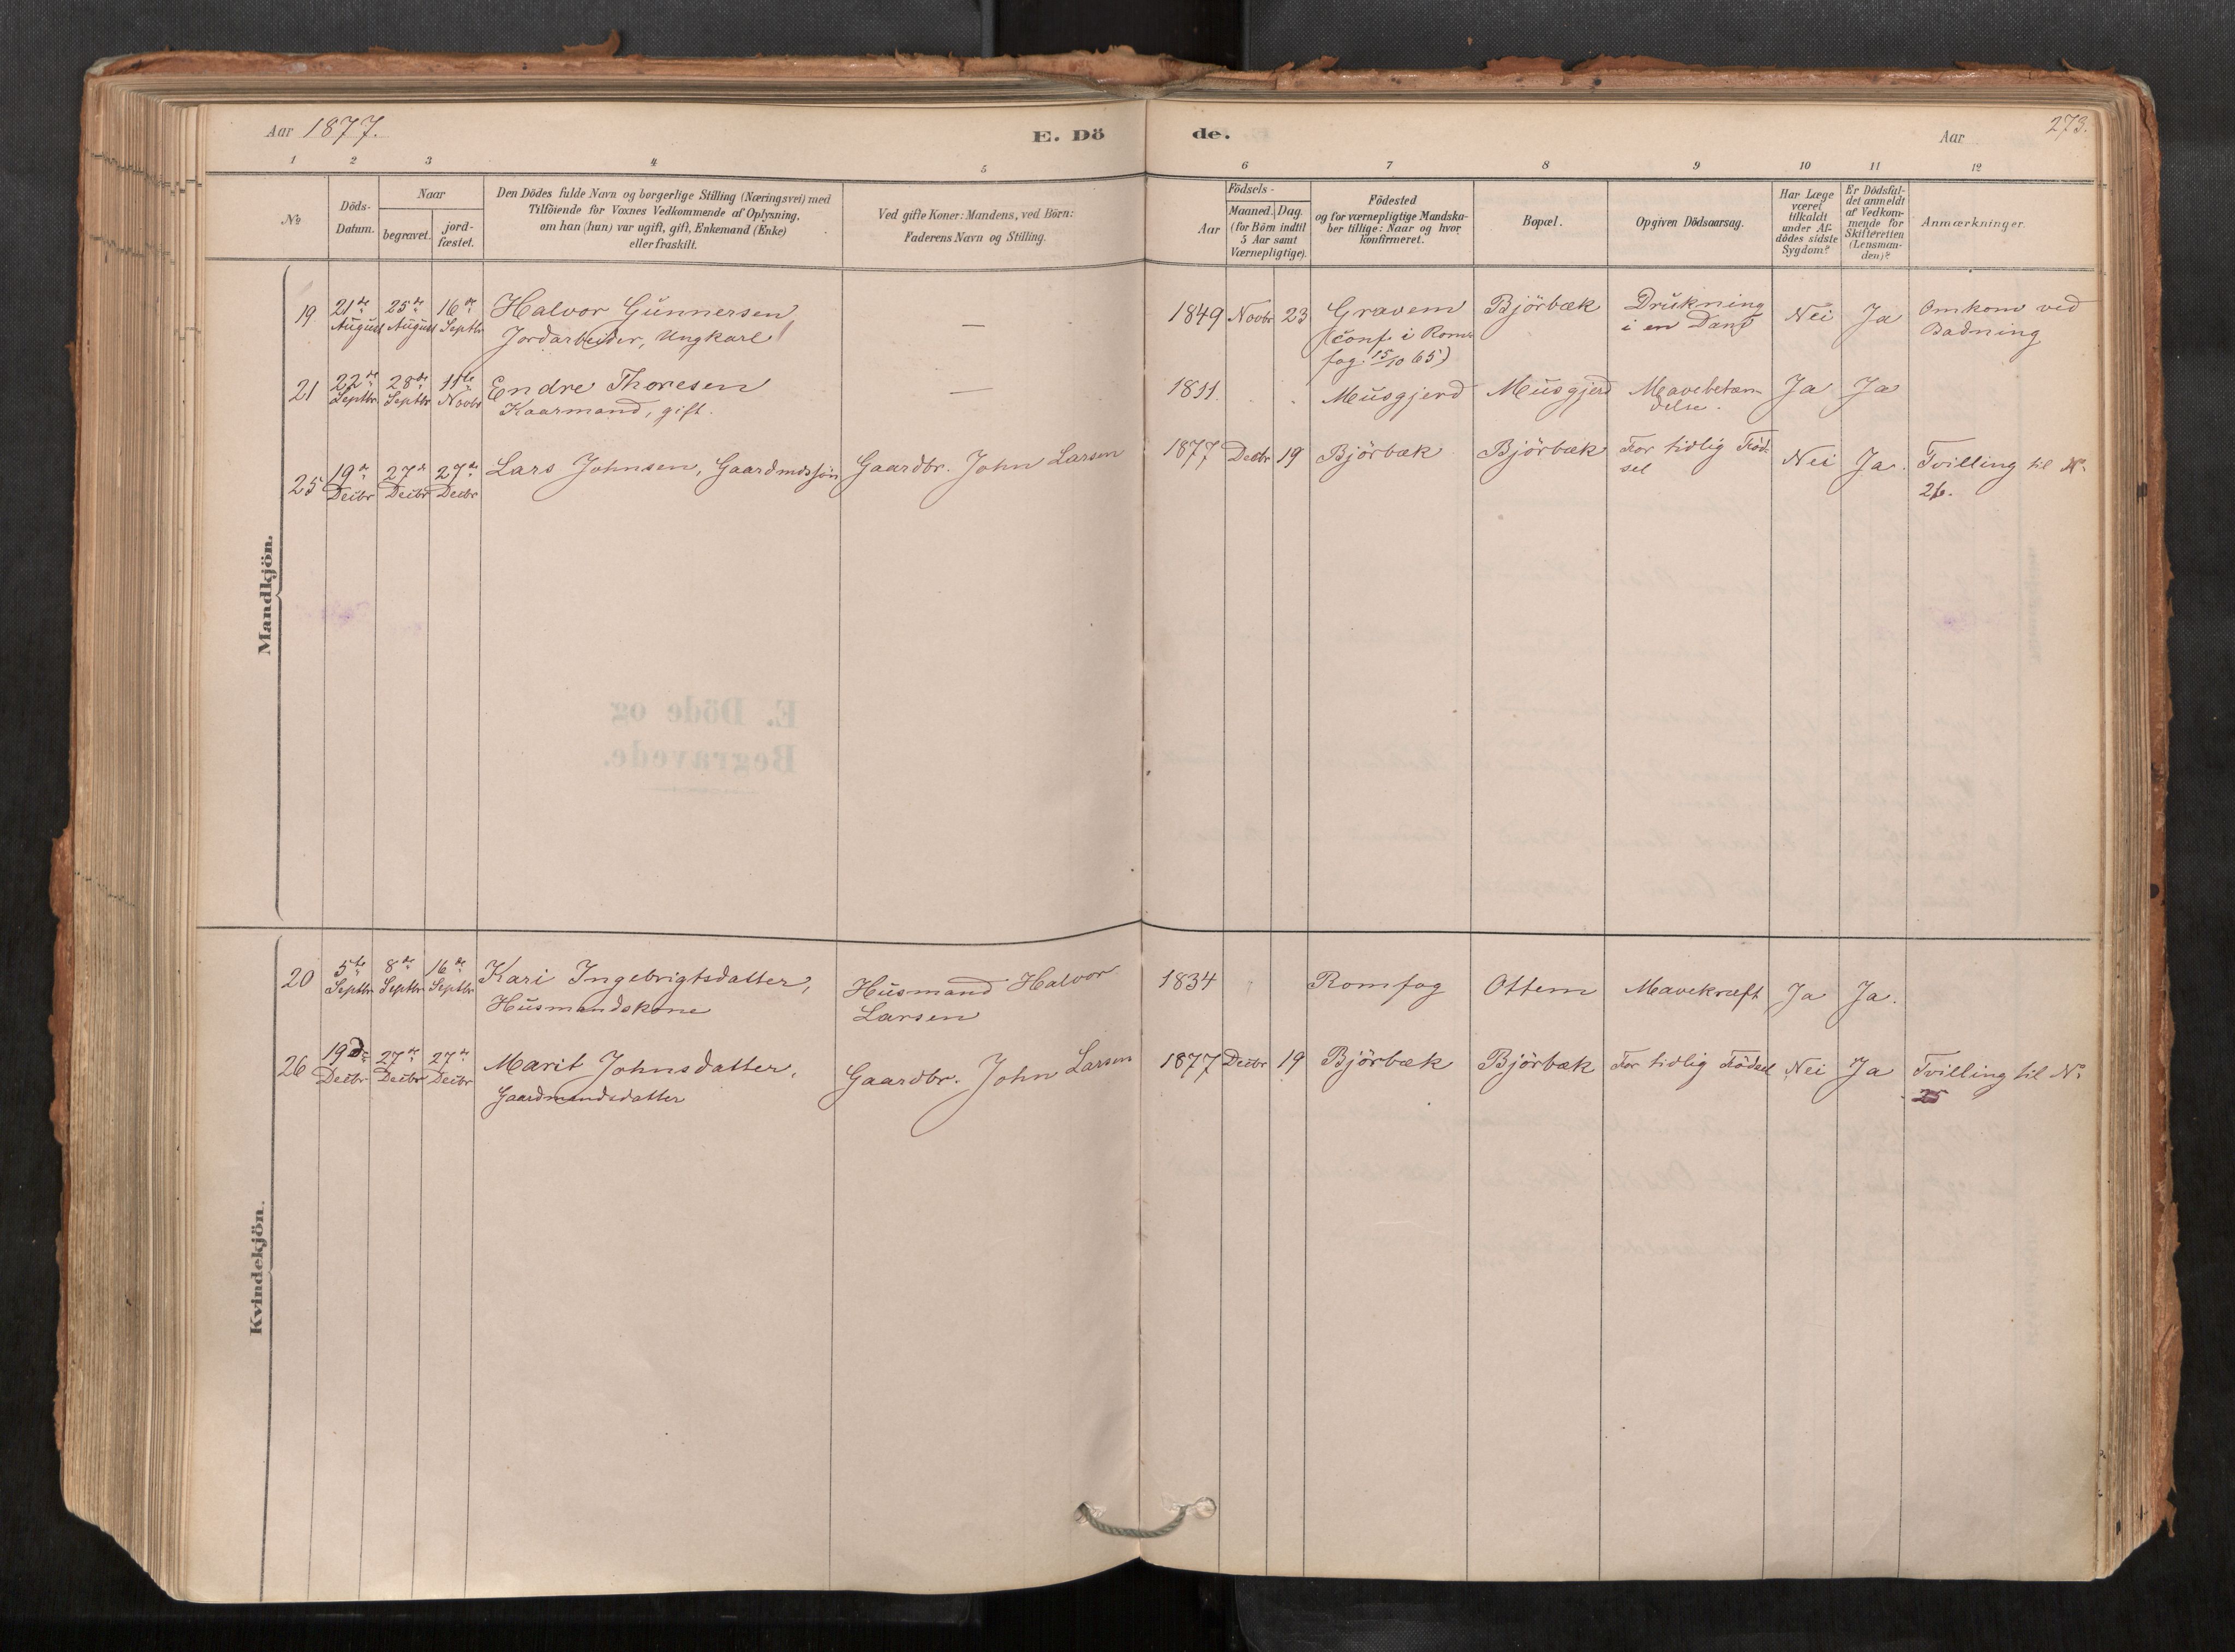 Aar 1877.
E. Döde.
Aar
273.
1 2 3 4 5 6 7 8 9 10 11 12
No
Döds-
Datum.
Naar
begravet.
jord-
fæstet.
Den Dödes fulde Navn og borgerlige Stilling (Næringsvei) med
Tilföiende for Voxnes Vedkommende af Oplysning,
om han (hun) var ugift, gift, Enkemand (Enke)
eller fraskilt.
Ved gifte Koner: Mandens, ved Börn:
Faderens Navn og Stilling.
Födsels-
Aar
Maaned. Dag.
(for Börn indtil
5 Aar samt
Værnepligtige).
Födested
og for værnepligtige Mandska-
ber tillige: Naar og hvor
konfirmeret.
Bopæl.
Opgiven Dödsaarsag.
Har Læge
været
tilkaldt
under Af-
dödes sidste
Sygdom?
Er Dödsfal-
det anmeldt
af Vedkom-
mende for
Skifteretten
(Lensman-
den)?
Anmærkninger.
Mandkjön.
19 21de 25de 16de Halvor Gunnersen — 1849 Novbr 23 Gravem Björbæk Drukning Nei Ja Omkom ved
August August Septbr Jordarbeider, Ungkarl (conf. i Roms- i en Dam Badning
fog. 15/10 65)
21 22de 28de 11te Endre Thoresen — 1811. Musgjerd Musgjerd Mavebetæn Ja Ja
Septbr Septbr Novbr Kaarmand, gift. delse.
25 19de 27de 27de Lars Johnsen, Gaardmdssön Gaardbr. John Larsen 1877 Decbr 19 Björbæk Björbæk For tidlig Föd- Nei Ja. Tvilling til No
Decbr Decbr Decbr sel 26.
E. Döde og
Begravede.
Kvindekjön.
20 5te 8de 16de Kari Ingebrigtsdatter, Husmand Halvor 1834 Romfog Ottem Mavekræft Ja Ja.
Septbr Septbr Septbr Husmandskone Larsen
26 19de 27de 27de Marit Johnsdatter, Gaardbr. John Larsen 1877 Decbr 19 Björbæk Björbæk For tidlig Födsel Nei Ja Tvilling til No
Decbr Decbr Decbr Gaardmandsdatter 25